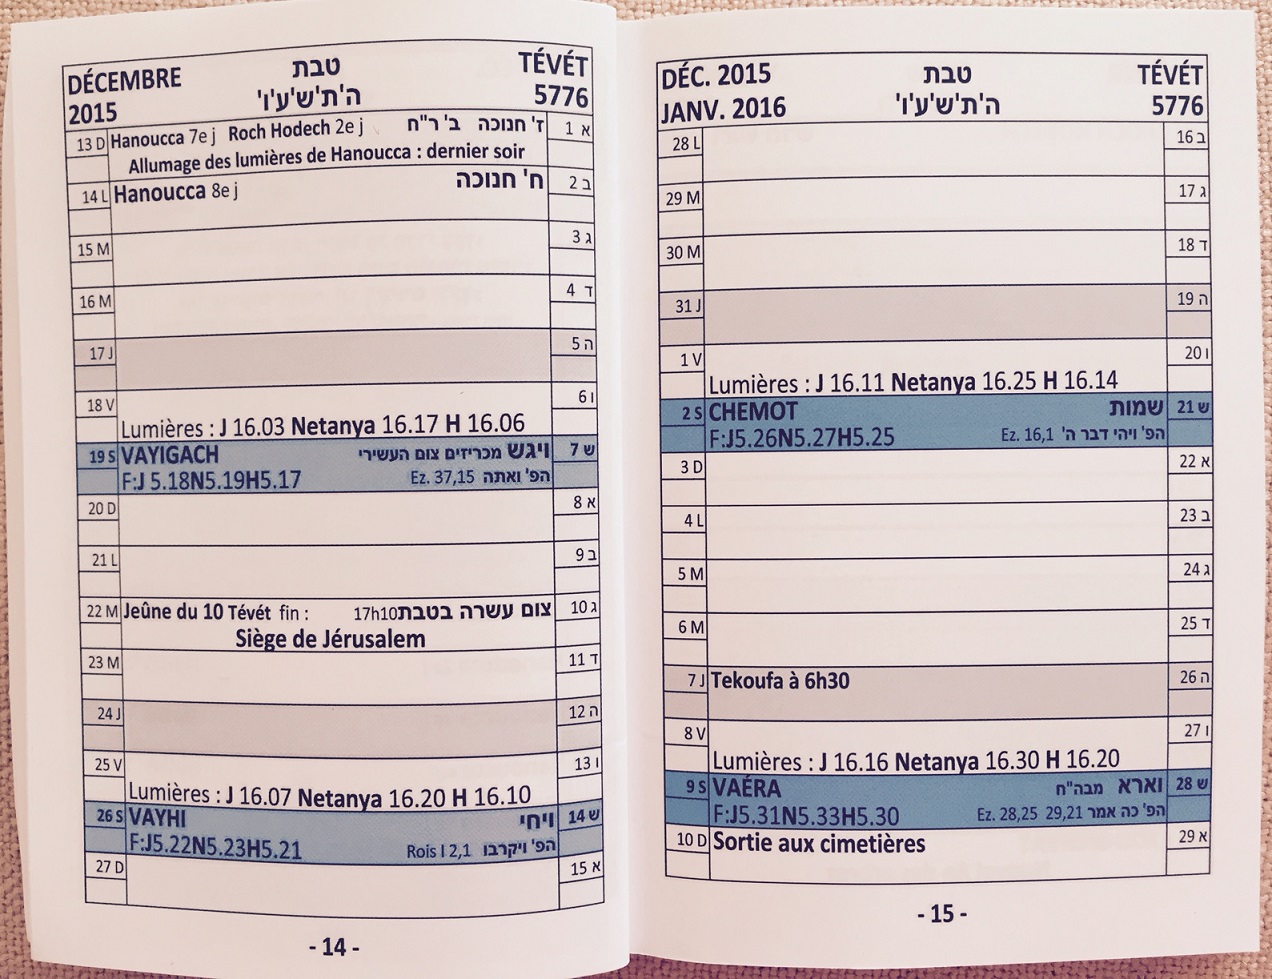 DÉCEMBRE טבת TÉVÉT
2015 ה'ת'ש'ע'ו' 5776
13 D Hanoucca 7e j Roch Hodech 2e j ז' חנוכה ב' ר"ח א 1
Allumage des lumières de Hanoucca : dernier soir
14 L Hanoucca 8e j ח' חנוכה ב 2
15 M ג 3
16 M ד 4
17 J ה 5
18 V ו 6
Lumières : J 16.03 Netanya 16.17 H 16.06
19 S VAYIGACH ויגש מכריזים צום העשירי ש 7
F:J 5.18N5.19H5.17 הפ' ואתה Ez. 37,15
20 D א 8
21 L ב 9
22 M Jeûne du 10 Tévét fin : 17h10 צום עשרה בטבת ג 10
Siège de Jérusalem
23 M ד 11
24 J ה 12
25 V ו 13
Lumières : J 16.07 Netanya 16.20 H 16.10
26 S VAYHI ויחי ש 14
F:J5.22N5.23H5.21 הפ' ויקרבו Rois I 2,1
27 D א 15
- 14 -
DÉC. 2015 טבת TÉVÉT
JANV. 2016 ה'ת'ש'ע'ו' 5776
28 L ב 16
29 M ג 17
30 M ד 18
31 J ה 19
1 V ו 20
Lumières : J 16.11 Netanya 16.25 H 16.14
2 S CHEMOT שמות ש 21
F:J5.26N5.27H5.25 הפ' ויהי דבר ה' Ez. 16,1
3 D א 22
4 L ב 23
5 M ג 24
6 M ד 25
7 J Tekoufa à 6h30 ה 26
8 V ו 27
Lumières : J 16.16 Netanya 16.30 H 16.20
9 S VAÉRA וארא מבה"ח ש 28
F:J5.31N5.33H5.30 הפ' כה אמר Ez. 28,25 29,21
10 D Sortie aux cimetières א 29
- 15 -